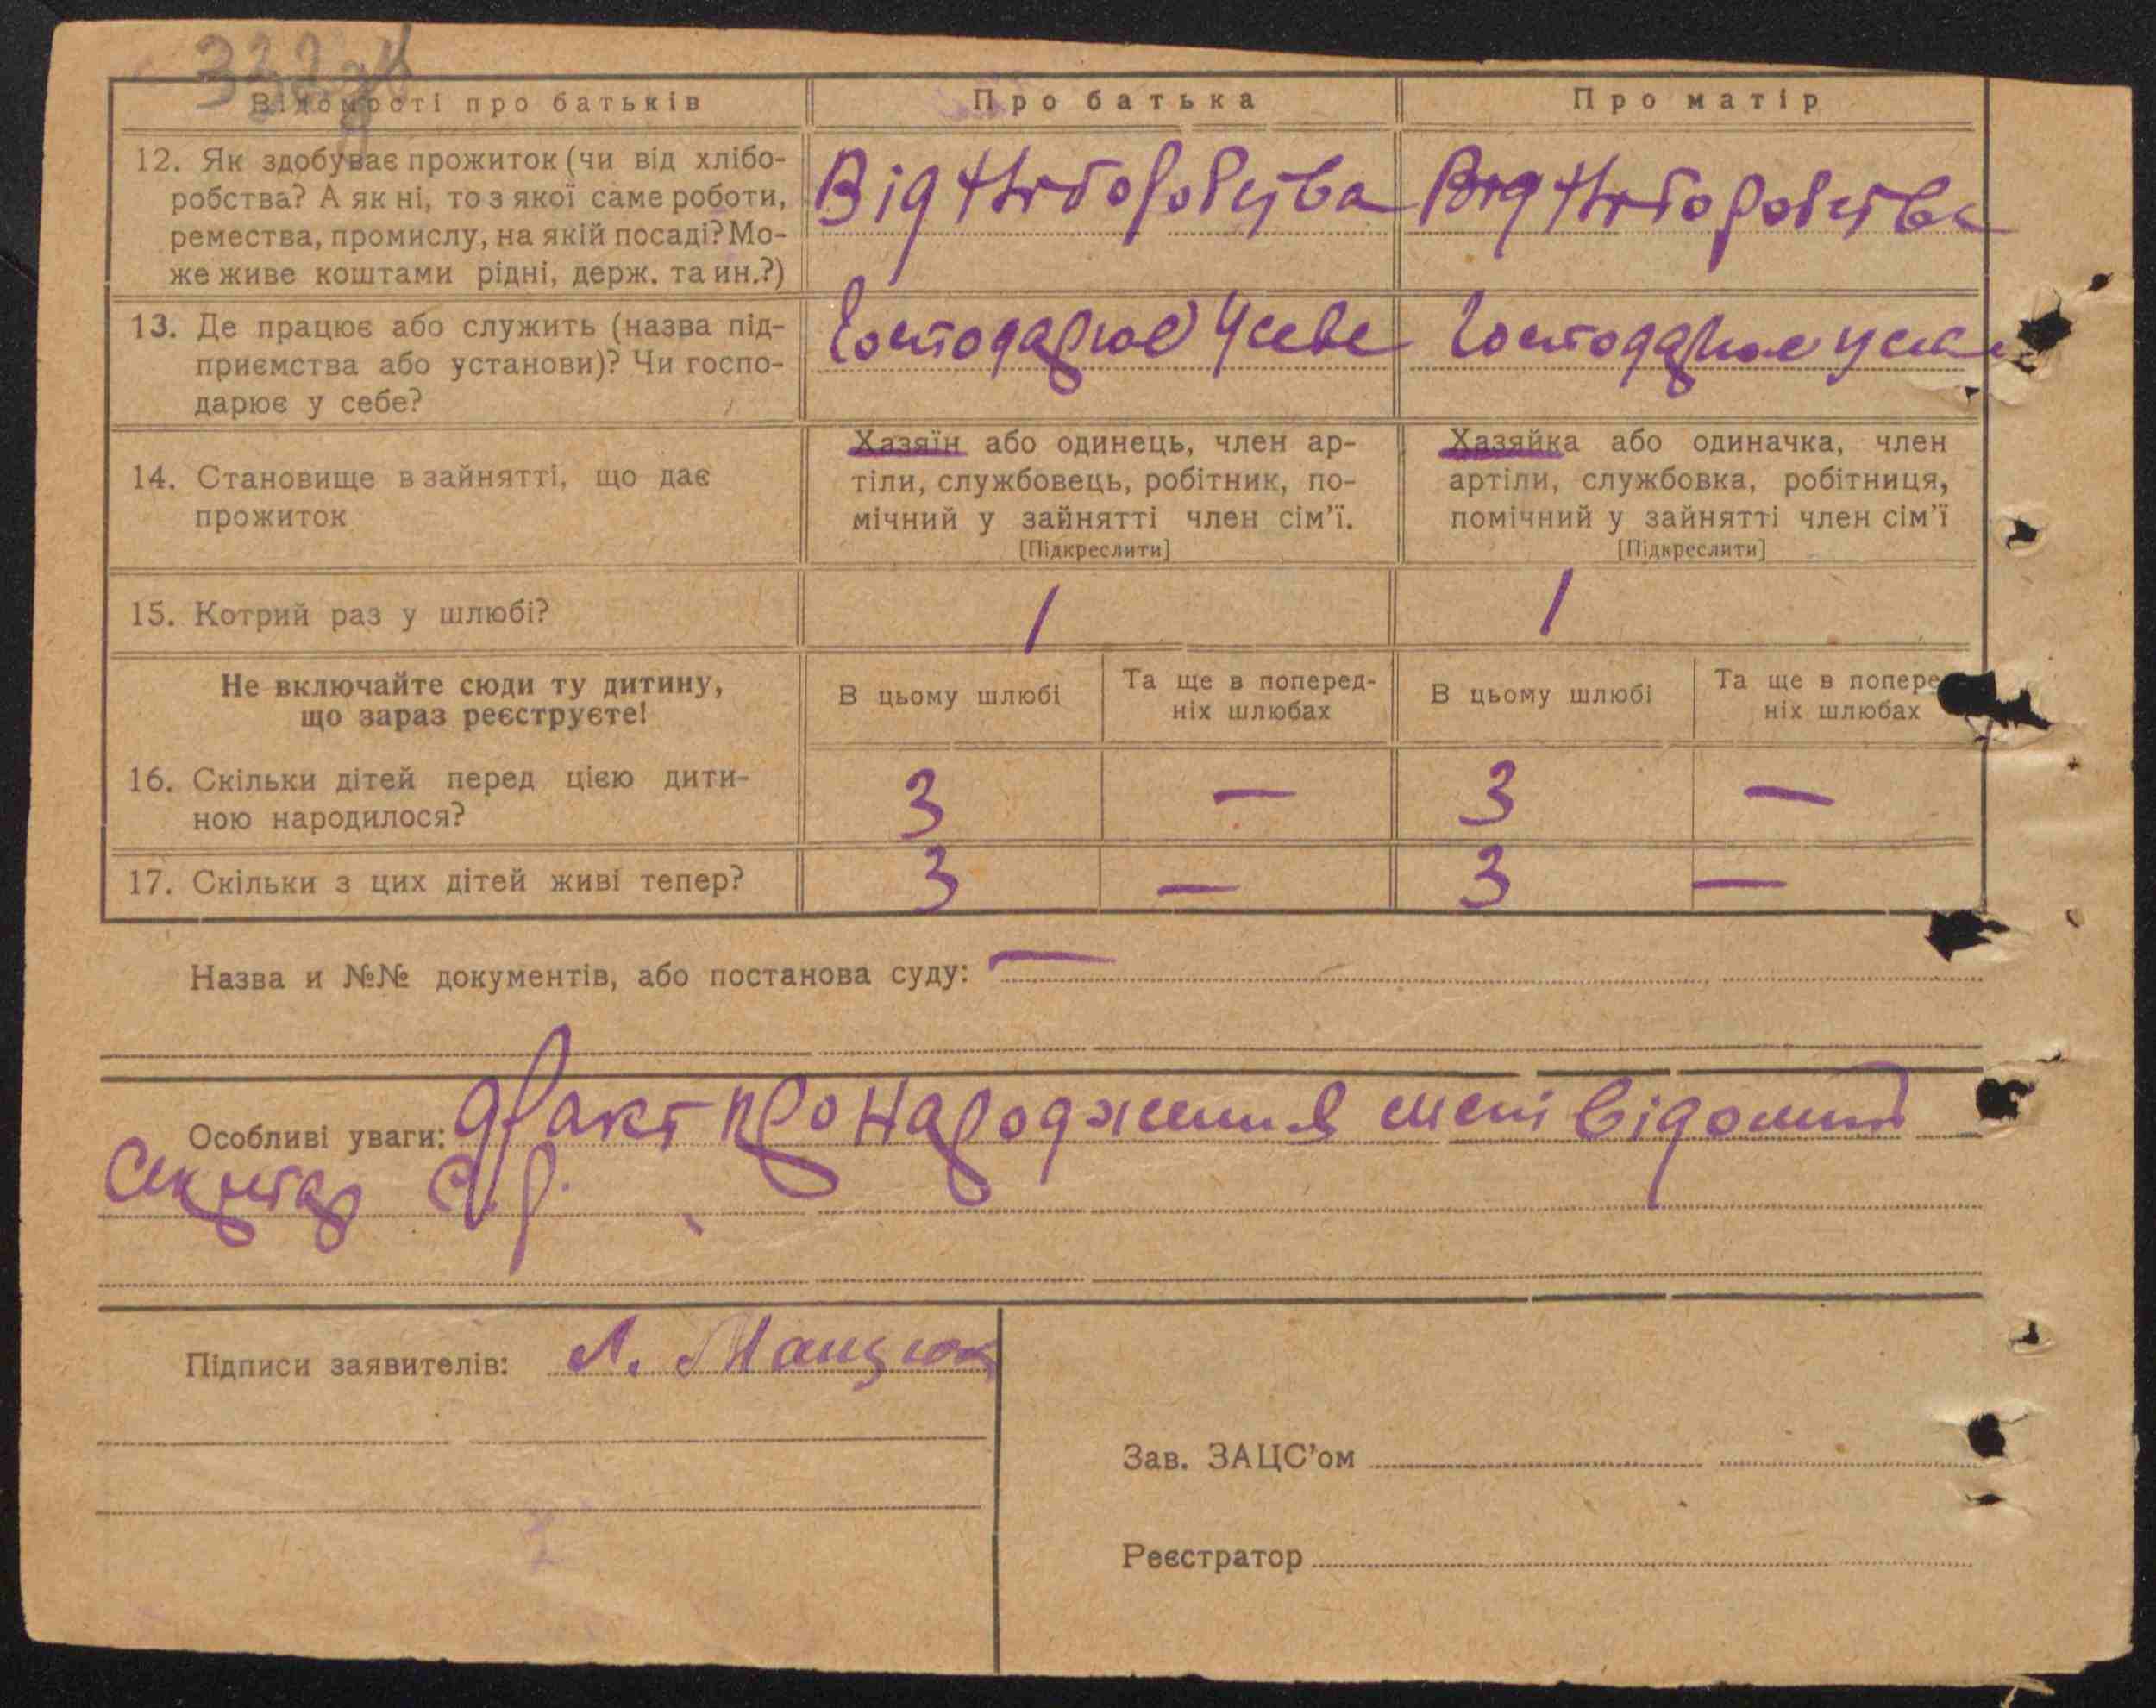 332
Відомості про батьків
Про батька
Про матір
12. Як здобуває прожиток (чи від хлібо-
робства? А як ні, то з якої саме роботи,
ремества, промислу, на якій посаді? Мо-
же живе коштами рідні, держ. та ин.?)
Від хліборобства
Від хліборобства
13. Де працює або служить (назва під-
приємства або установи)? Чи госпо-
дарює у себе?
Господарює у себе
Господарює у себе
14. Становище в зайнятті, що дає
прожиток
Хазяїн або одинець, член ар-
тіли, службовець, робітник, по-
мічний у зайнятті член сім'ї.
[Підкреслити]
Хазяйка або одиначка, член
артіли, службовка, робітниця,
помічний у зайнятті член сім'ї
[Підкреслити]
15. Котрий раз у шлюбі?
1
1
Не включайте сюди ту дитину,
що зараз реєструєте!
В цьому шлюбі
Та ще в поперед-
ніх шлюбах
В цьому шлюбі
Та ще в попере
ніх шлюбах
16. Скільки дітей перед цією дити-
ною народилося?
3 — 3 —
17. Скільки з цих дітей живі тепер?
3 — 3 —
Назва и №№ документів, або постанова суду: —
Особливі уваги: Факт про народження мені відомий
Секретар С.р.
Підписи заявителів: А. Мацюк
Зав. ЗАЦС'ом
Реєстратор